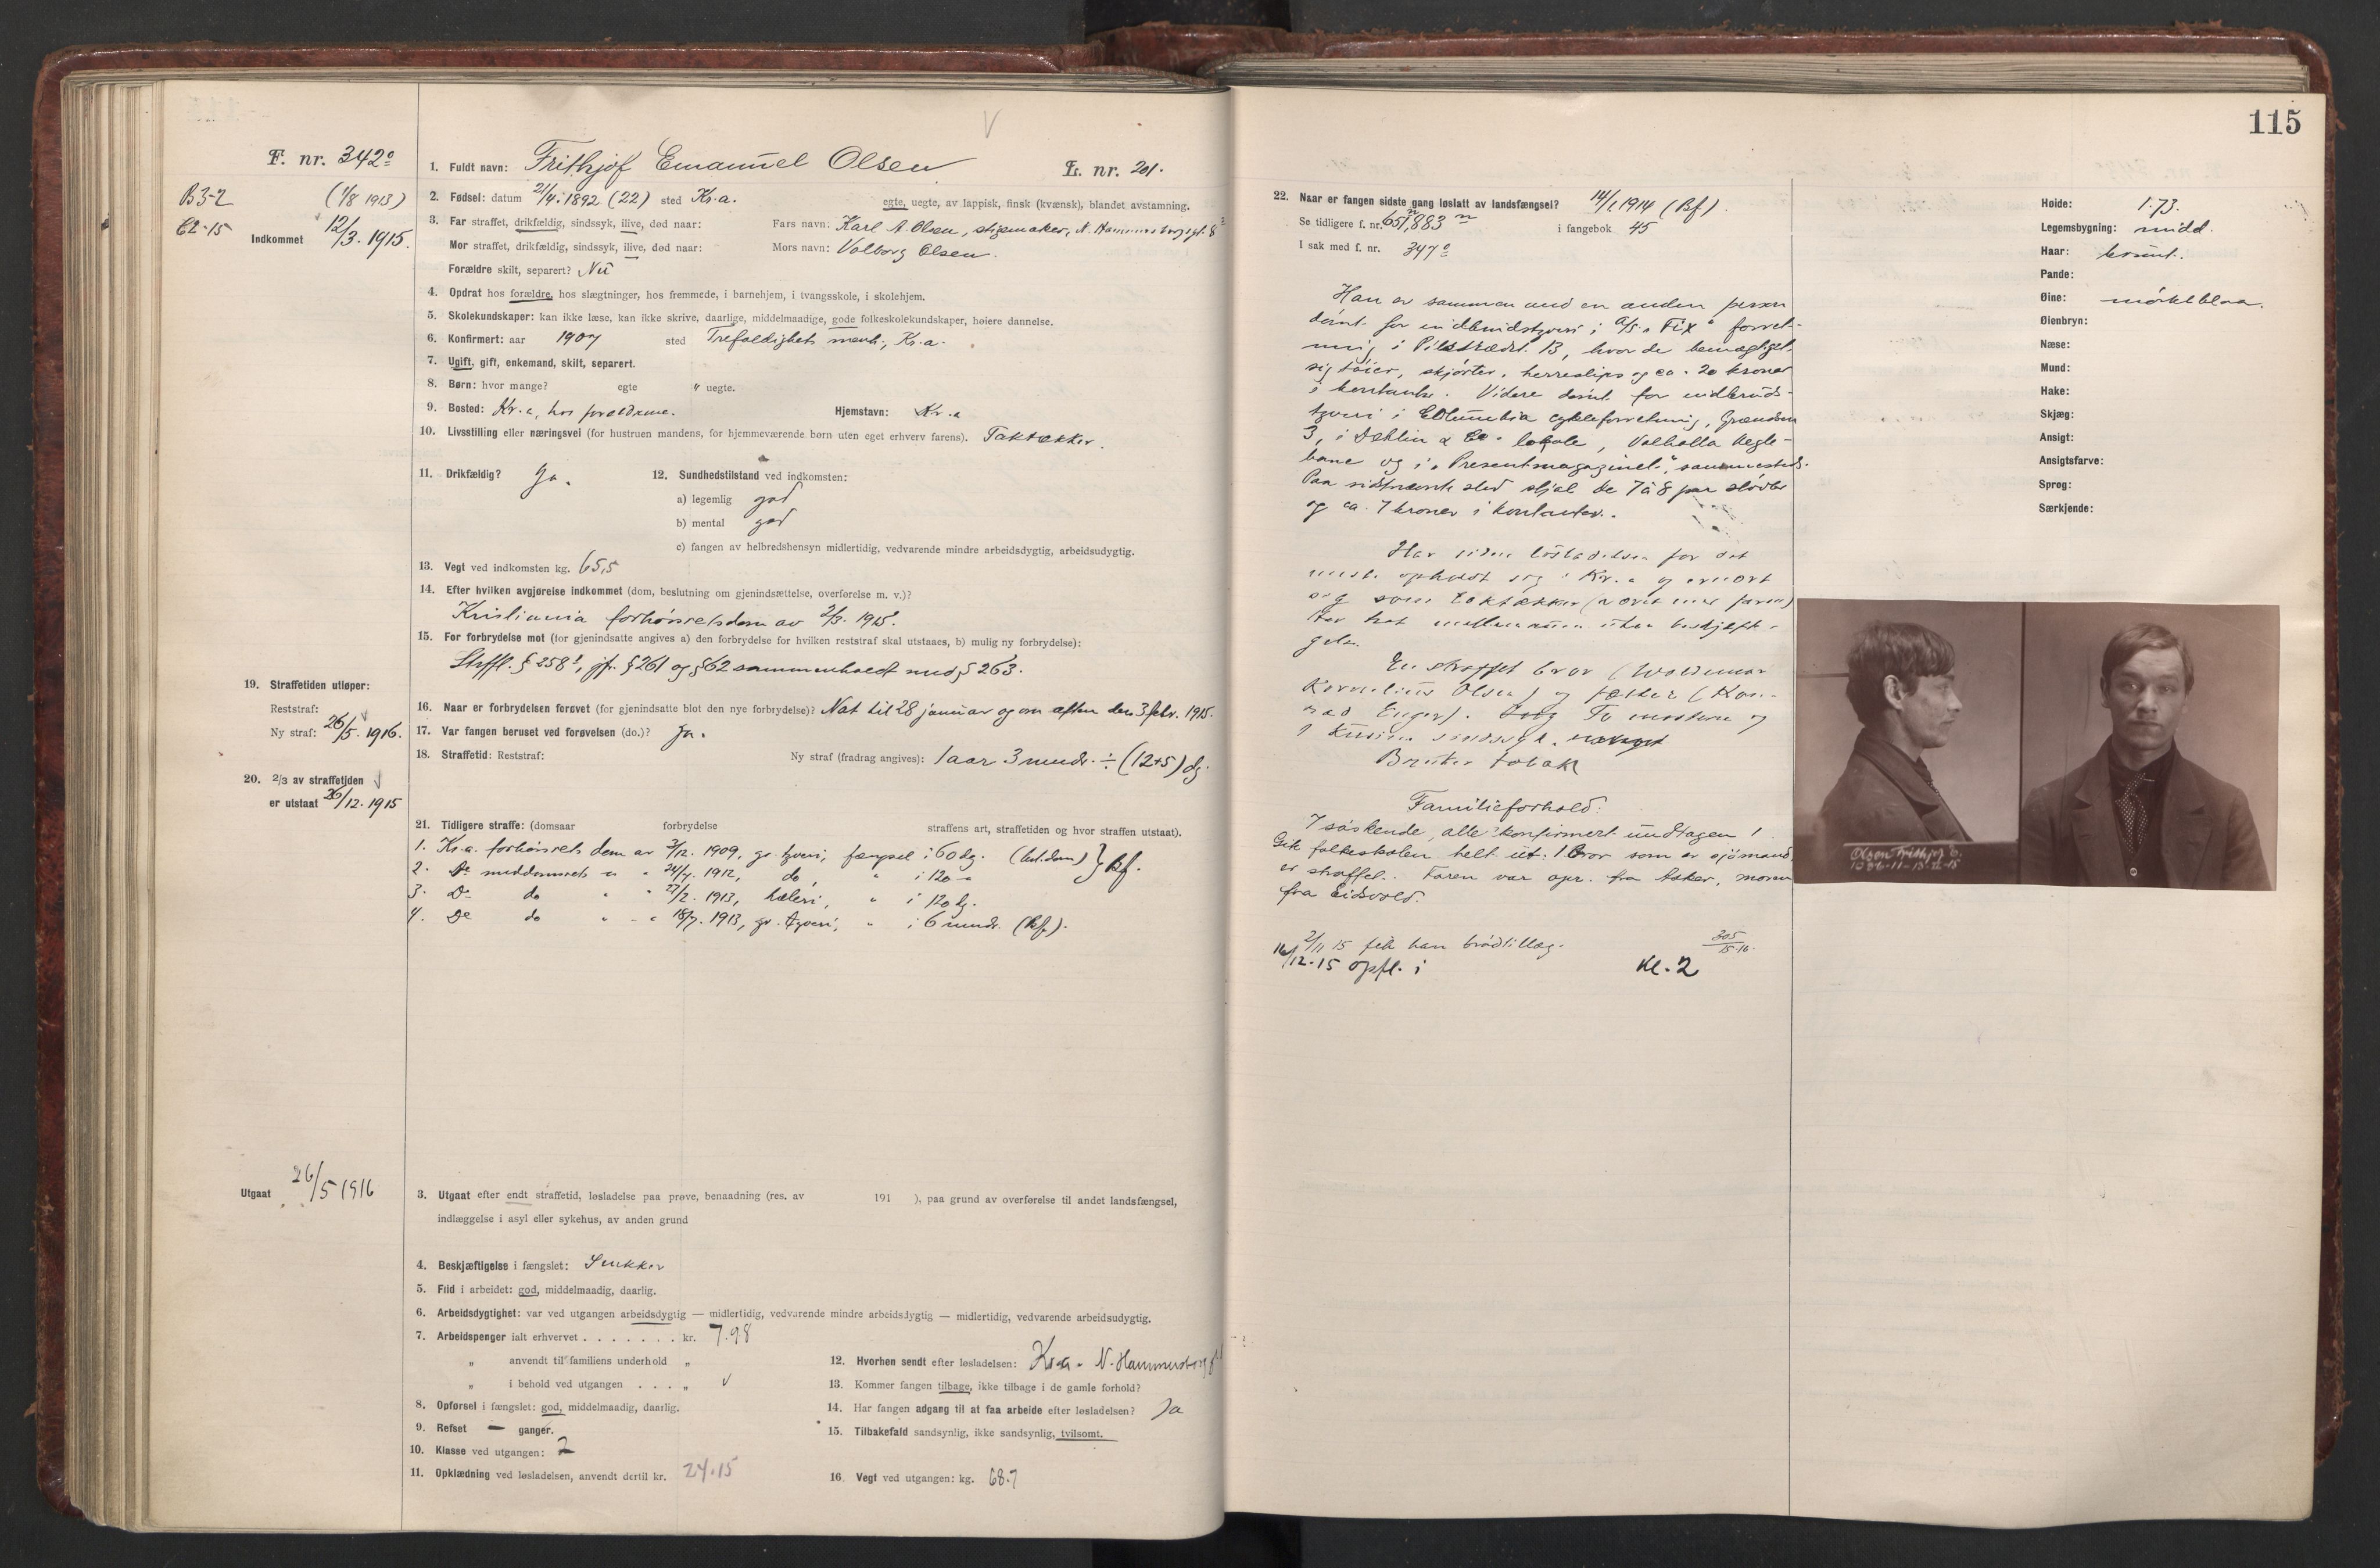 F. nr. 342º
B 3-2 (1/8 1913)
C2-15
Indkommet 12/3. 1915.
1. Fuldt navn: Frithjof Emanuel Olsen L. nr. 201.
2. Fødsel: datum 21/4. 1892 (22) sted Kr.a. egte, uegte, av lappisk, finsk (kvænsk), blandet avstamning.
3. Far straffet, drikfældig, sindssyk, ilive, død naar: Fars navn: Karl A. Olsen, stigemaker, N. Hammersborggt. 8
Mor straffet, drikfældig, sindssyk, ilive, død naar: Mors navn: Valborg Olsen.
Forældre skilt, separert? Nei
4. Opdrat hos forældre, hos slægtninger, hos fremmede, i barnehjem, i tvangsskole, i skolehjem.
5. Skolekundskaper: kan ikke læse, kan ikke skrive, daarlige, middelmaadige, gode folkeskolekundskaper, høiere dannelse.
6. Konfirmert: aar 1907 sted Trefoldighets menh., Kr.a.
7. Ugift, gift, enkemand, skilt, separert.
8. Børn: hvor mange? egte " uegte.
9. Bosted: Kr.a, hos forældrene. Hjemstavn: Kr.a
10. Livsstilling eller næringsvei (for hustruen mandens, for hjemmeværende børn uten eget erhverv farens). Taktækker.
11. Drikfældig? Ja. 12. Sundhedstilstand ved indkomsten:
a) legemlig god
b) mental god
c) fangen av helbredshensyn midlertidig, vedvarende mindre arbeidsdygtig, arbeidsudygtig.
13. Vegt ved indkomsten kg. 65,5
14. Efter hvilken avgjørelse indkommet (dom, beslutning om gjenindsættelse, overførelse m. v.)?
Kristiania forhørsretsdom av 2/3. 1915.
15. For forbrydelse mot (for gjenindsatte angives a) den forbrydelse for hvilken reststraf skal utstaaes, b) mulig ny forbrydelse):
Strffl. § 258², jfr. § 261 og § 62 sammenholdt med § 263.
19. Straffetiden utløper:
Reststraf:
Ny straf: 26/5. 1916.
16. Naar er forbrydelsen forøvet (for gjenindsatte blot den nye forbrydelse)? Nat til 28 januar og om aften den 3 febr. 1915.
17. Var fangen beruset ved forøvelsen (do.)? Ja.
18. Straffetid: Reststraf: Ny straf (fradrag angives): 1 aar 3 mndr. ÷ (12+5) dg.
20. 2/3 av straffetiden
er utstaat 26/12. 1915
21. Tidligere straffe: (domsaar forbrydelse straffens art, straffetiden og hvor straffen utstaat).
1. Kr.a. forhørsrets dom av 2/12. 1909, gr. tyveri, fængsel i 60 dg. (bet. dom) } Bf.
2. Do meddomsrets " " 24/7. 1912, do " i 120 "
3. Do do " " 27/2. 1913, hæleri, " i 120 dg.
4. Do do " " 18/7. 1913, gr. tyveri, " i 6 mndr. (Bf).
Utgaat 26/5 1916
3. Utgaat efter endt straffetid, løsladelse paa prøve, benaadning (res. av 191 ), paa grund av overførelse til andet landsfængsel,
indlæggelse i asyl eller sykehus, av anden grund
4. Beskjæftigelse i fængslet: Snekker
5. Flid i arbeidet: god, middelmaadig, daarlig.
6. Arbeidsdygtighet: var ved utgangen arbeidsdygtig — midlertidig, vedvarende mindre arbeidsdygtig — midlertidig, vedvarende arbeidsudygtig.
7. Arbeidspenger ialt erhvervet . . . . . . . kr. 7.98
" anvendt til familiens underhold "
" i behold ved utgangen . . . "
8. Opførsel i fængslet: god, middelmaadig, daarlig.
9. Refset — ganger.
10. Klasse ved utgangen: 2
11. Opklædning ved løsladelsen, anvendt dertil kr. 24.15
12. Hvorhen sendt efter løsladelsen: Kr.a. N. Hammersborg 8
13. Kommer fangen tilbage, ikke tilbage i de gamle forhold?
14. Har fangen adgang til at faa arbeide efter løsladelsen? Ja
15. Tilbakefald sandsynlig, ikke sandsynlig, tvilsomt.
16. Vegt ved utgangen: kg. 68.7
115
22. Naar er fangen sidste gang løslatt av landsfængsel? 14/1 1914 (Bf).
Se tidligere f. nr. 651, 883 i fangebok 45
I sak med f. nr. 347º
Han er sammen med en anden person
dømt for indbrudstyveri i A/S „Fix" forret-
ning i Pilestrædet 13, hvor de bemægtiget
sig tøier, skjorter, herreslips og ca. 20 kroner
i kontanter. Videre dømt for indbruds-
tyveri i Columbia cykleforretning, Grændsen
3, i Dehlin & Co. lokale, Valhalla Kegle-
bane og i „Presentmagazinet", sammesteds.
Paa sidstnævnte sted stjal de 7 à 8 par støvler
og ca. 7 kroner i kontanter.
Har siden løsladelsen for det
meste opholdt sig i Kr.a og ernært
sig som taktækker (været med faren)
Har hat mellemrum uten beskjæfti-
gelse.
En straffet bror (Woldemar
Kornelius Olsen) og fætter (Kon-
rad Enger). To mostre og
1 kusine sindssyk.
Bruker tobak
Familieforhold:
7 søskende, alle konfirmert undtagen 1.
Gik folkeskolen helt ut. 1 bror som er sjømand
er straffet. Faren var opr. fra Asker, moren
fra Eidsvold.
2/11 15 fik han brødtillæg. 305/15-16.
16/12.15 opfl. i Kl. 2
Høide: 1.73.
Legemsbygning: midd.
Haar: brunt.
Pande:
Øine: mørkeblaa.
Øienbryn:
Næse:
Mund:
Hake:
Skjæg:
Ansigt:
Ansigtsfarve:
Sprog:
Særkjende:
Olsen Frithjof E.